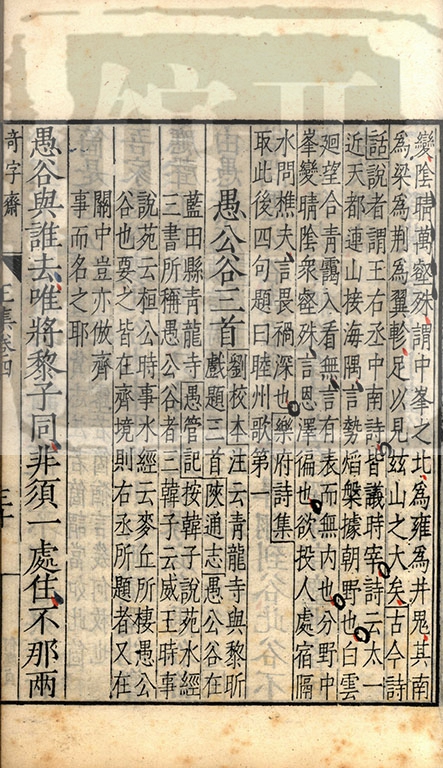 變陰晴萬壑殊謂中峯之北爲雍爲井鬼其南
爲梁爲荆爲翼軫足以見玆山之大矣古今詩
話說者謂王右丞中南詩皆議時宰詩云太一
近天都連山接海隅言勢焰槃據朝野也白雲
廻望合青靄入看無言有表而無內也分野中
峯變晴陰衆壑殊言恩澤徧也欲投人處宿隔
水問樵夫言畏禍深也樂府詩集
取此後四句題曰睦州歌第一
愚公谷三首
劉校本注云青龍寺與黎昕
戲題三首陜通志愚公谷在
藍田縣青龍寺愚管記按韓子說苑水經
三書所稱愚公谷者三韓子云威王時事
說苑云桓公時事水經云麥丘所棲愚公
谷也要之皆在齊境則右丞所題者又在
關中豈亦倣齊
事而名之耶
愚谷與誰去唯將黎子同非須一處住不那兩
奇字齋 王集卷四